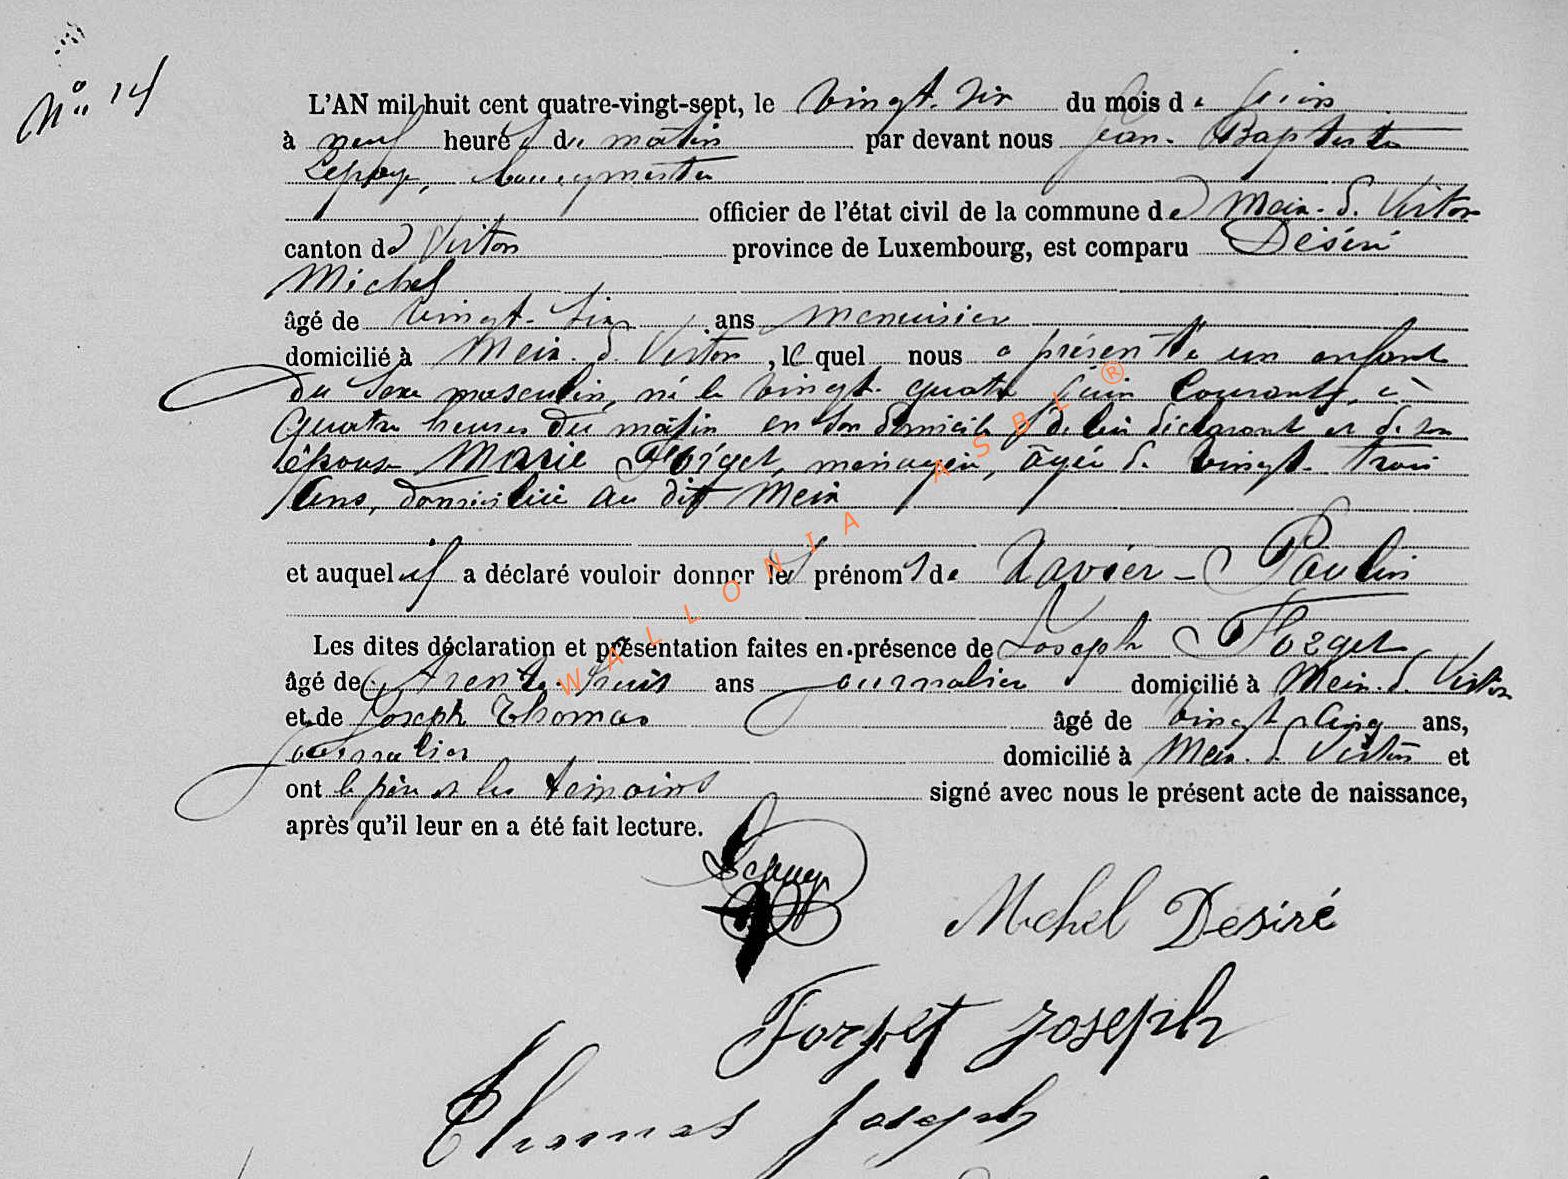 N° 14
L'AN mil huit cent quatre-vingt-sept, le vingt-six du mois de Juin
à neuf heures du matin par devant nous Jean-Baptiste
Lepage, bourgmestre
officier de l'état civil de la commune de Meix-d-Virton
canton de Virton province de Luxembourg, est comparu Désiré
Michel
âgé de vingt-six ans menuisier
domicilié à Meix-d-Virton, lequel nous a présenté un enfant
du sexe masculin, né le vingt-quatre Juin Courant, à
quatre heures du matin en son domicile de lui déclarant et de son
épouse Marie Forget, ménagère, âgée de vingt-trois
ans, domiciliée au dit Meix
et auquel il a déclaré vouloir donner les prénoms de Xavier-Paulin
Les dites déclaration et présentation faites en présence de Joseph Forget
âgé de trente-trois ans journalier domicilié à Meix-d-Virton
et de Joseph Thomas âgé de vingt cinq ans,
journalier domicilié à Meix-d-Virton et
ont le père et les témoins signé avec nous le présent acte de naissance,
après qu'il leur en a été fait lecture.
Michel Desiré
Forget Joseph
Thomas Joseph
WALLONIA ASBL ®